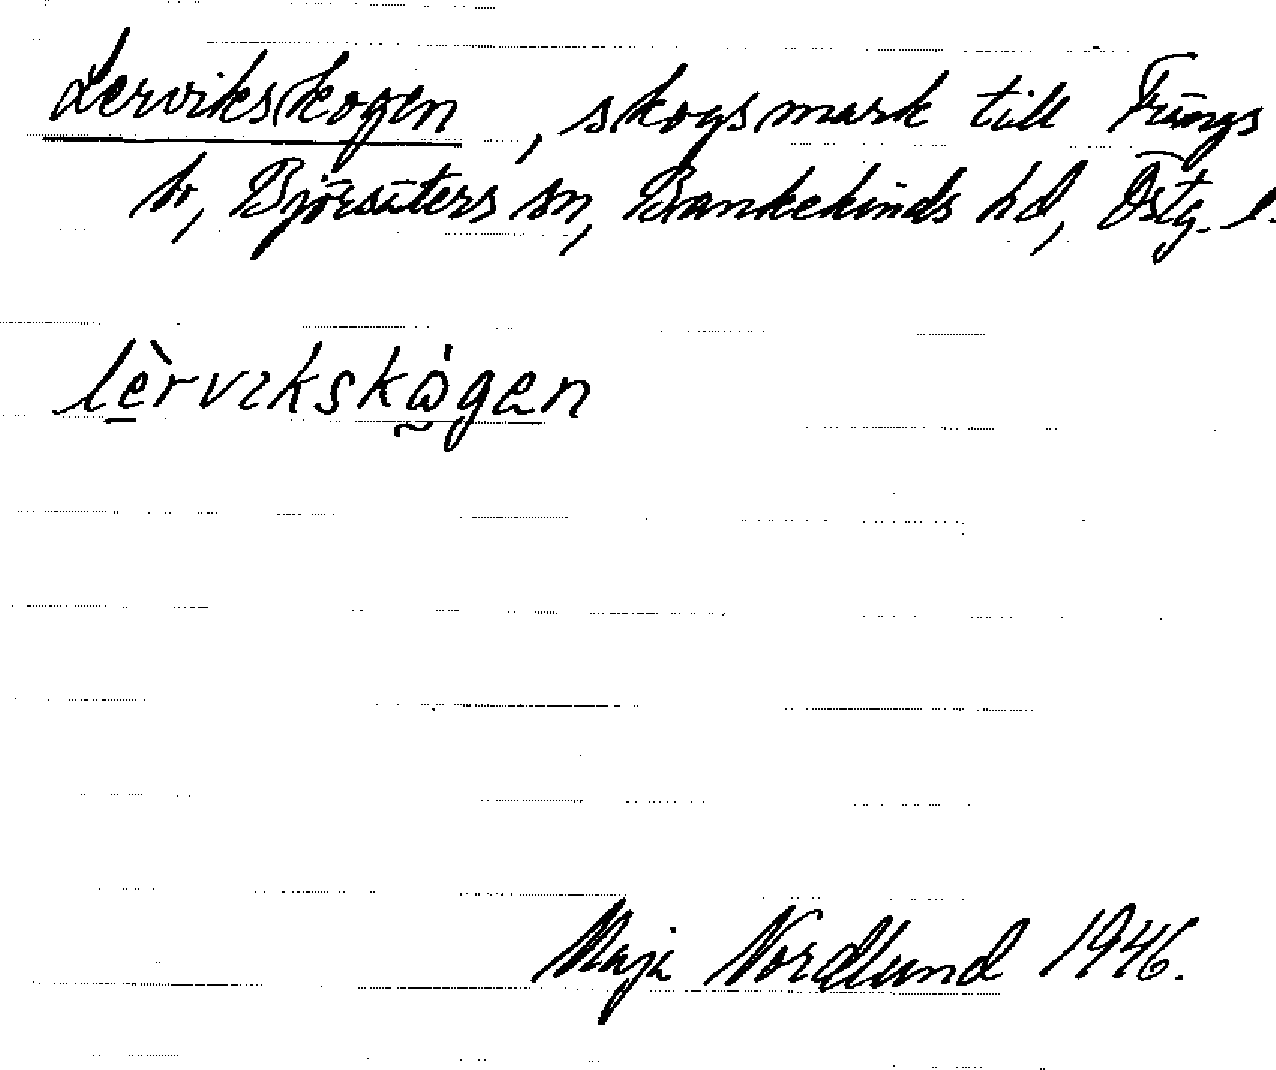 Lervikskogen, skogsmark till Frängs
by, Björsäters sn, Bankekinds hd, Östg. l.
lèrvikskògen
Maja Nordlund 1946.